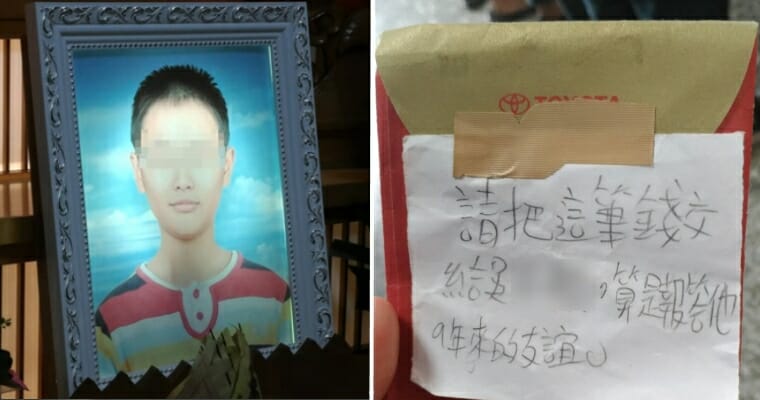 TOYOTA
請把這筆錢交
給 ,算是報答他
9年來的友誼。